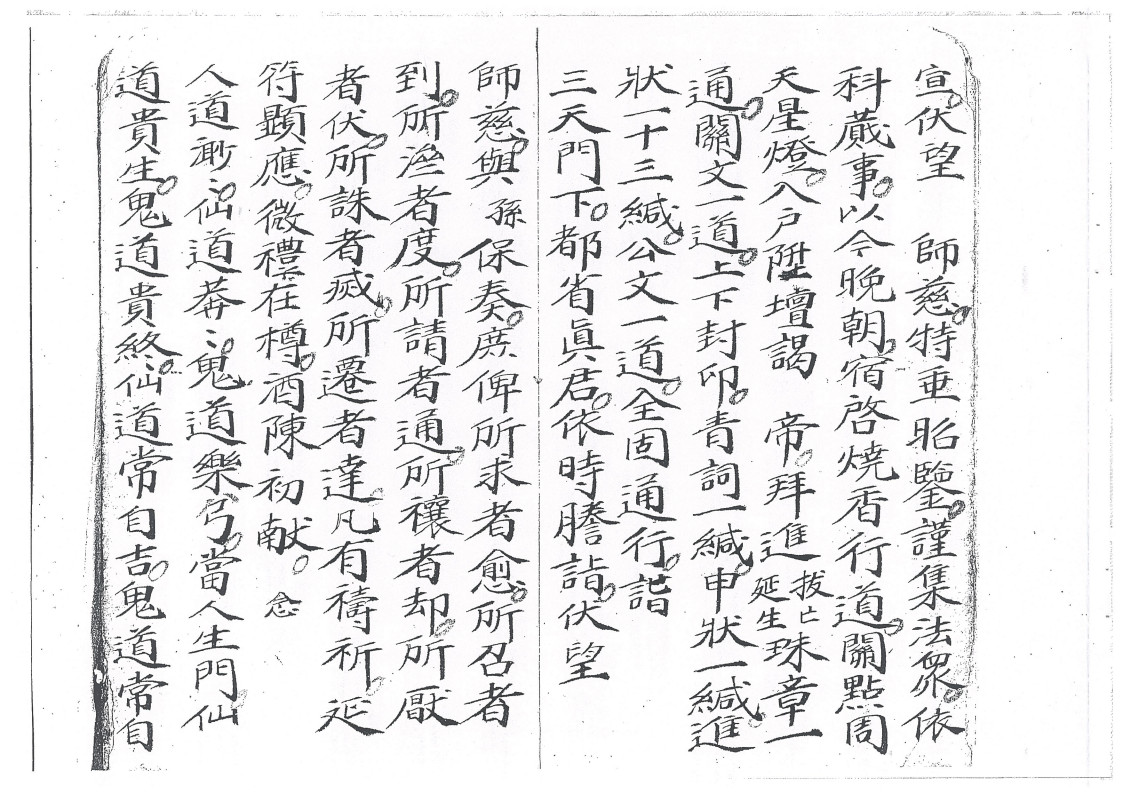 宣伏望　師慈特垂昭鑒謹集法眾依
科蕆事以今晚朝宿啓燒香行道關點周
天星燈入戶陞壇謁　帝拜進拔亡延生珠章一
通關文一道上下封印青詞一緘申狀一緘進
狀一十三緘公文一道全固通行詣
三天門下都省眞君依時謄詣伏望
師慈與孫保奏庶俾所求者愈所召者
到所滄者度所請者通所禳者却所厭
者伏所誅者滅所遷者達凡有禱祈延
符顯應微禮在樽酒陳初献　念
人道渺ミ仙道莽ミ鬼道樂兮當人生門仙
道貴生鬼道貴終仙道常自吉鬼道常自